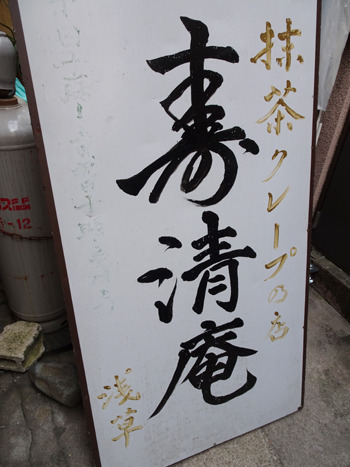 抹茶クレープの店
寿清庵
浅草
-12